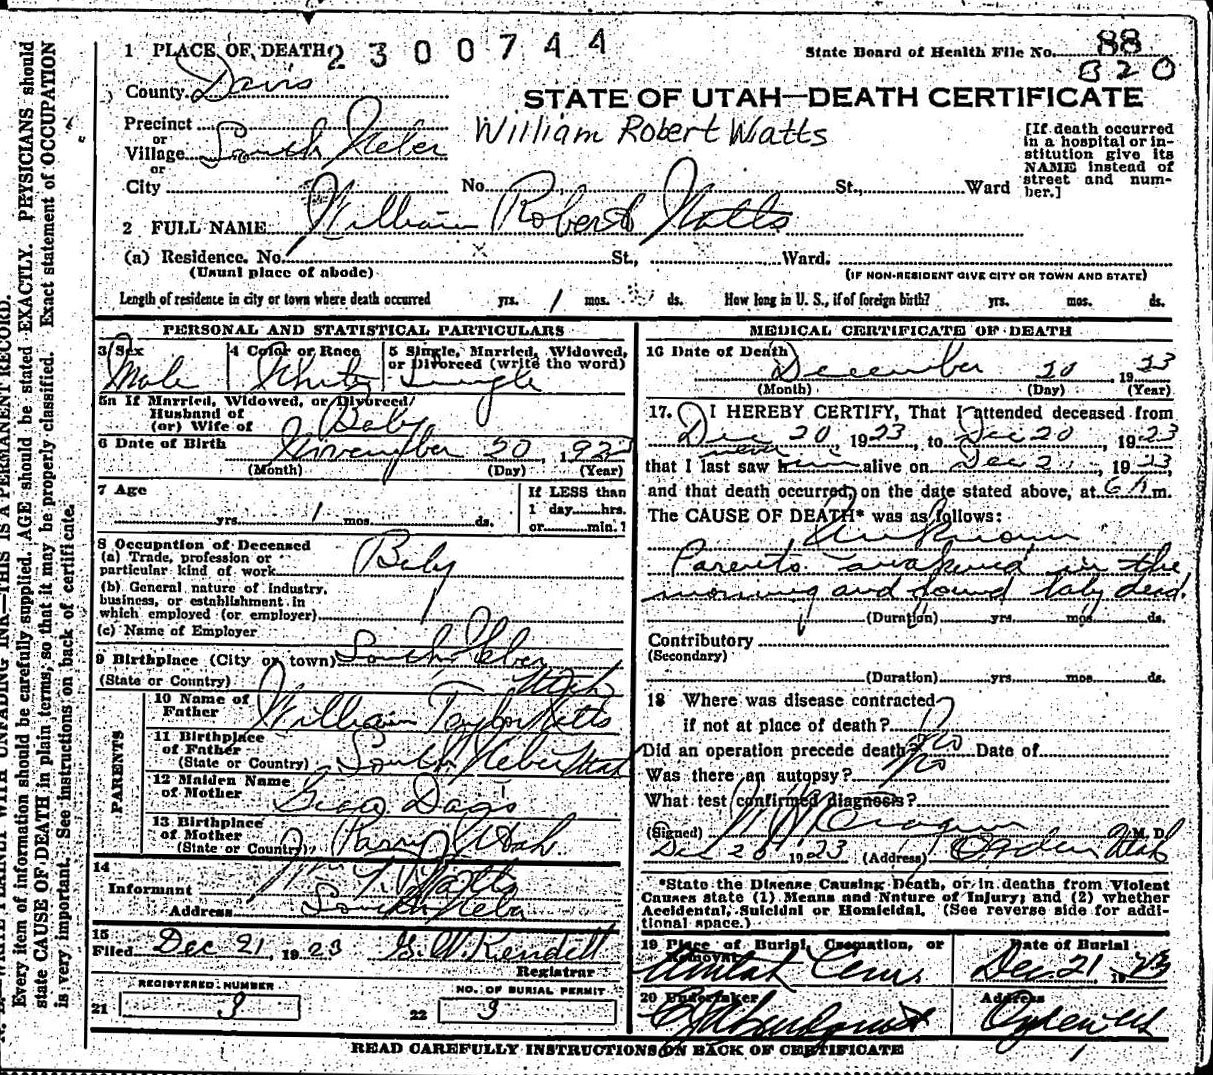 1 PLACE OF DEATH 2300744
State Board of Health File No. 88
820
County Davis
STATE OF UTAH—DEATH CERTIFICATE
Precinct
or
Village South Weber
or
William Robert Watts
[If death occurred
in a hospital or in-
stitution give its
NAME instead of
street and num-
ber.]
City No. St., Ward
2 FULL NAME William Robert Watts
(a) Residence. No. St., Ward.
(Usual place of abode)
(IF NON-RESIDENT GIVE CITY OR TOWN AND STATE)
Length of residence in city or town where death occurred yrs. 1 mos. ds. How long in U. S., if of foreign birth? yrs. mos. ds.
PERSONAL AND STATISTICAL PARTICULARS
3 Sex
Male
4 Color or Race
White
5 Single, Married, Widowed,
or Divorced (write the word)
Single
5a If Married, Widowed, or Divorced
Husband of
(or) Wife of
Baby
6 Date of Birth November 20, 1923
(Month) (Day) (Year)
7 Age
yrs. 1 mos. ds.
If LESS than
1 day hrs.
or min.?
8 Occupation of Deceased
(a) Trade, profession or
particular kind of work Baby
(b) General nature of industry,
business, or establishment in
which employed (or employer)
(c) Name of Employer
9 Birthplace (City or town) South Weber
(State or Country) Utah
PARENTS
10 Name of
Father William Taylor Watts
11 Birthplace
of Father
(State or Country) South Weber Utah
12 Maiden Name
of Mother Davis
13 Birthplace
of Mother
(State or Country) Perry Utah
14
Informant Wm T Watts
Address South Weber
15
Filed Dec 21, 1923 G. W. Kendell
Registrar
REGISTERED NUMBER
21 9
NO. OF BURIAL PERMIT
22 9
MEDICAL CERTIFICATE OF DEATH
16 Date of Death
December 20, 1923
(Month) (Day) (Year)
17. I HEREBY CERTIFY, That I attended deceased from
Dec 20, 1923, to Dec 20, 1923
never
that I last saw him alive on Dec 2, 1923,
and that death occurred, on the date stated above, at 6 m.
The CAUSE OF DEATH* was as follows:
Unknown
Parents awakened in the
morning and found baby dead.
(Duration) yrs. mos. ds.
Contributory
(Secondary)
(Duration) yrs. mos. ds.
18 Where was disease contracted
if not at place of death?
Did an operation precede death? No Date of
Was there an autopsy? No
What test confirmed diagnosis?
(Signed) M. D.
Dec 20 1923 (Address) Ogden Utah
*State the Disease Causing Death, or in deaths from Violent
Causes state (1) Means and Nature of Injury; and (2) whether
Accidental, Suicidal or Homicidal. (See reverse side for addi-
tional space.)
19 Place of Burial, Cremation, or
Removal
Uintah Cem.
Date of Burial
Dec. 21, 1923
20 Undertaker
Address
Ogden Utah
READ CAREFULLY INSTRUCTIONS ON BACK OF CERTIFICATE
WRITE PLAINLY WITH UNFADING INK—THIS IS A PERMANENT RECORD.
Every item of information should be carefully supplied. AGE should be stated EXACTLY. PHYSICIANS should
state CAUSE OF DEATH in plain terms, so that it may be properly classified. Exact statement of OCCUPATION
is very important. See instructions on back of certificate.